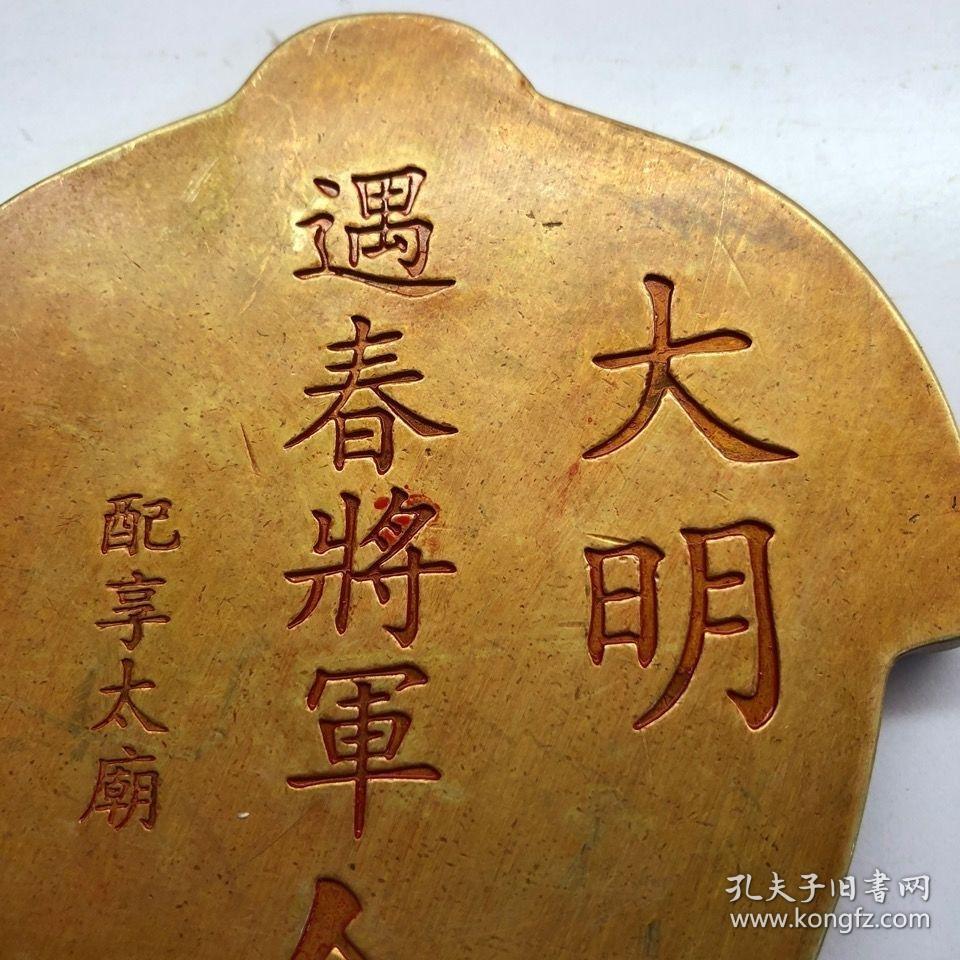 大明
遇春將軍
配享太廟
孔夫子旧書网
www.kongfz.com